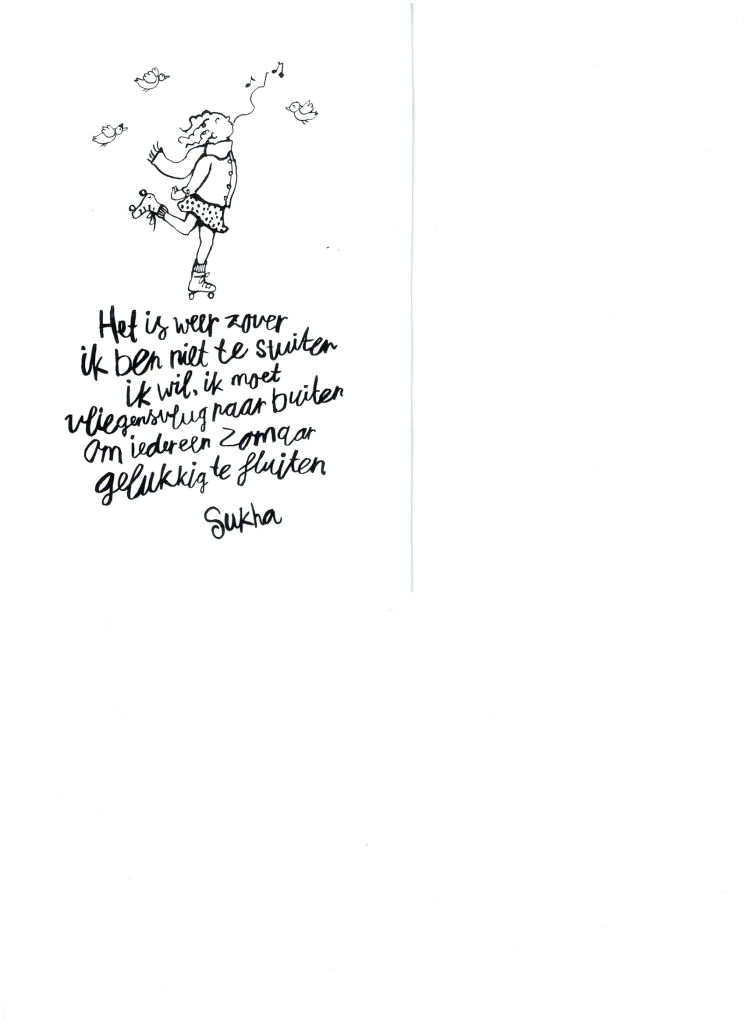 Het is weer zover
ik ben niet te stuiten
ik wil, ik moet
vliegensvlug naar buiten
om iedereen zomaar
gelukkig te fluiten
Sukha